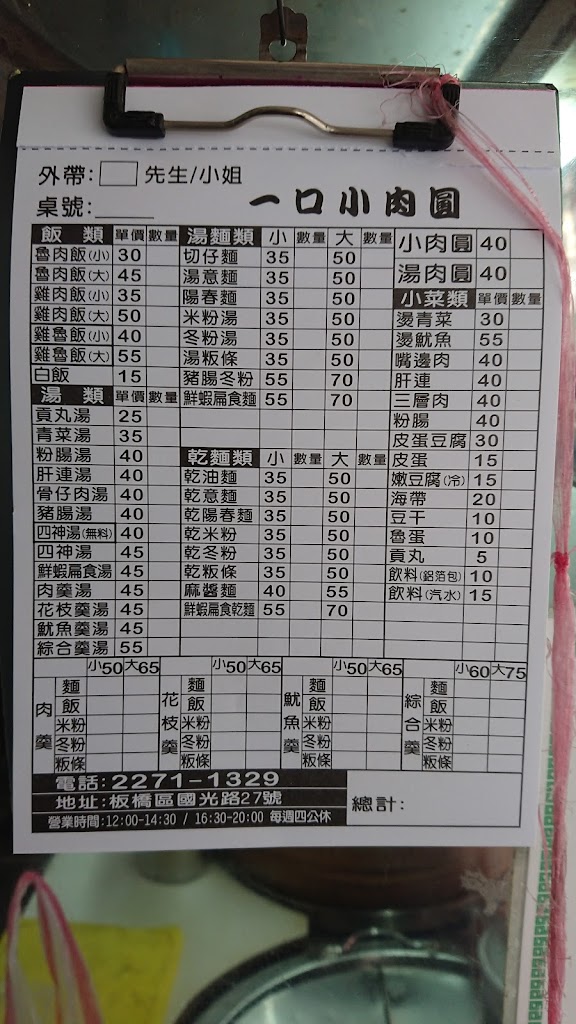 外帶: 先生/小姐
桌號:
一口小肉圓
飯類 單價 數量
魯肉飯(小) 30
魯肉飯(大) 45
雞肉飯(小) 35
雞肉飯(大) 50
雞魯飯(小) 40
雞魯飯(大) 55
白飯 15
湯類 單價 數量
貢丸湯 25
青菜湯 35
粉腸湯 40
肝連湯 40
骨仔肉湯 40
豬腸湯 40
四神湯(無料) 40
四神湯 45
鮮蝦扁食湯 45
肉羹湯 45
花枝羹湯 45
魷魚羹湯 45
綜合羹湯 55
湯麵類 小 數量 大 數量
切仔麵 35 50
湯意麵 35 50
陽春麵 35 50
米粉湯 35 50
冬粉湯 35 50
湯粄條 35 50
豬腸冬粉 55 70
鮮蝦扁食麵 55 70
乾麵類 小 數量 大 數量
乾油麵 35 50
乾意麵 35 50
乾陽春麵 35 50
乾米粉 35 50
乾冬粉 35 50
乾粄條 35 50
麻醬麵 40 55
鮮蝦扁食乾麵 55 70
小肉圓 40
湯肉圓 40
小菜類 單價 數量
燙青菜 30
燙魷魚 55
嘴邊肉 40
肝連 40
三層肉 40
粉腸 40
皮蛋豆腐 30
皮蛋 15
嫩豆腐(冷) 15
海帶 20
豆干 10
魯蛋 10
貢丸 5
飲料(鋁箔包) 10
飲料(汽水) 15
肉羹 小50 大65
麵
飯
米粉
冬粉
粄條
花枝羹 小50 大65
麵
飯
米粉
冬粉
粄條
魷魚羹 小50 大65
麵
飯
米粉
冬粉
粄條
綜合羹 小60 大75
麵
飯
米粉
冬粉
粄條
電話:2271-1329
地址:板橋區國光路27號
營業時間:12:00-14:30 / 16:30-20:00 每週四公休
總計: